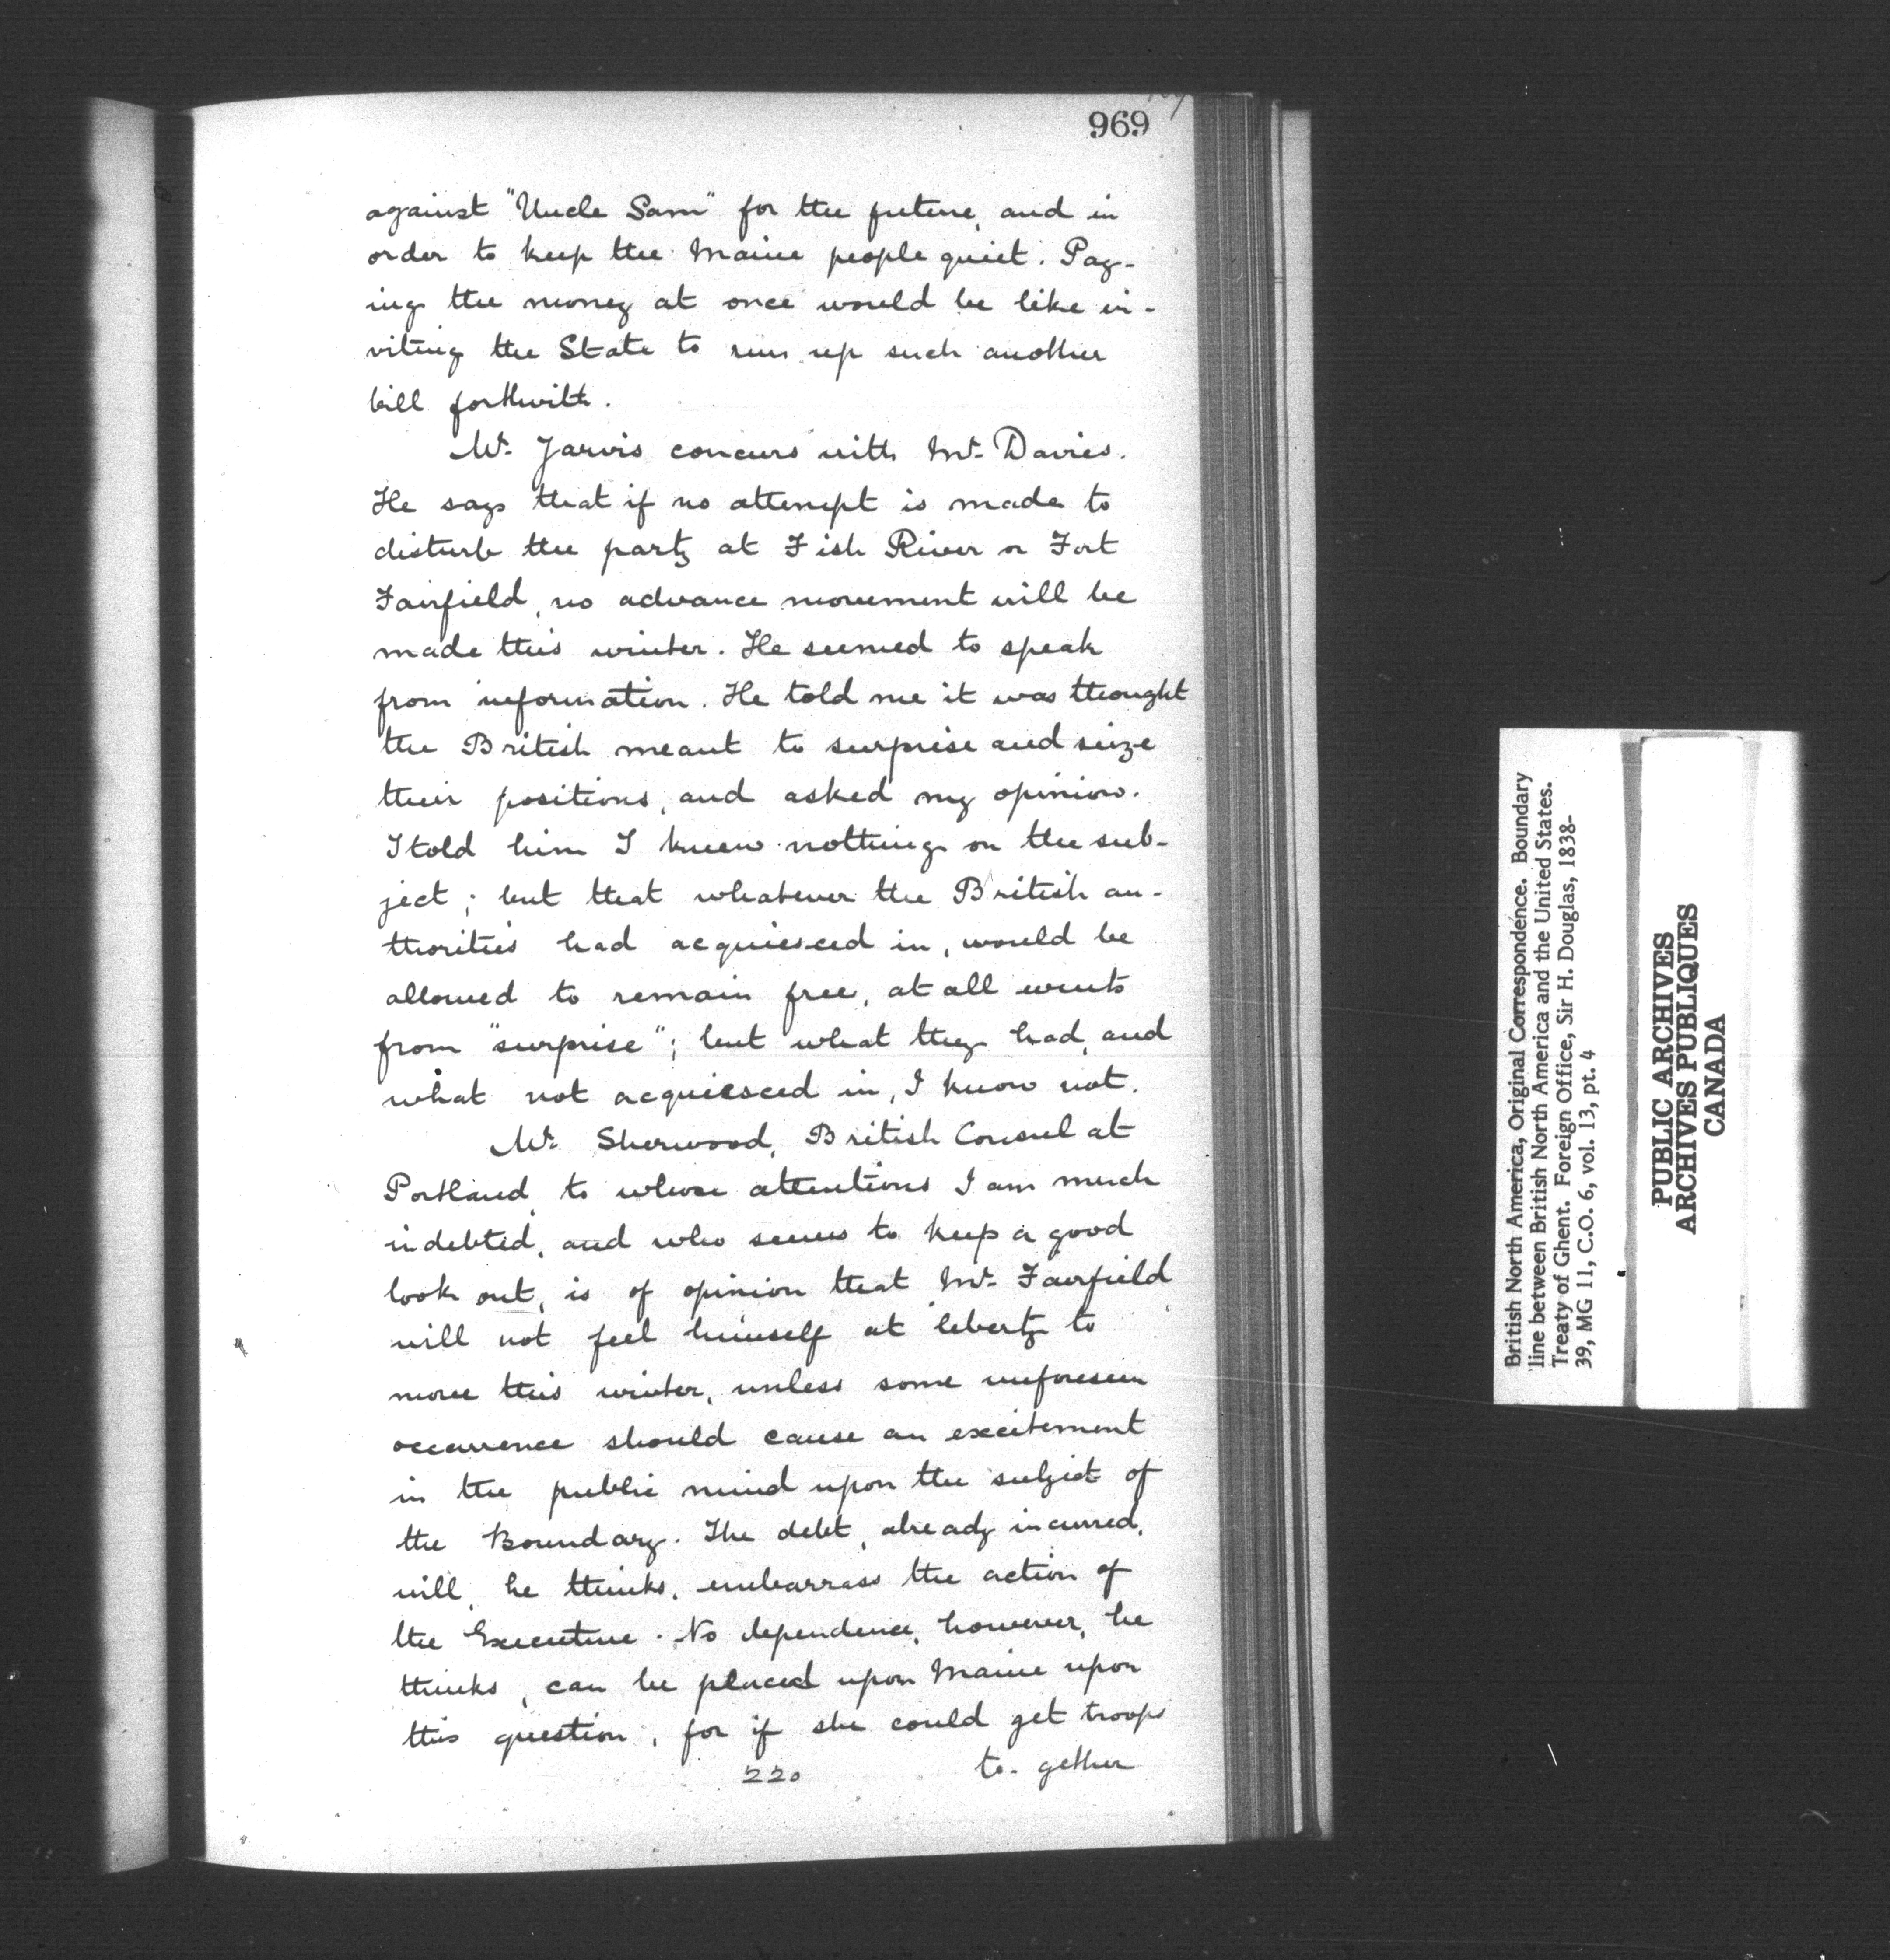 969
against "Uncle Sam" for the future, and in
order to keep the Maine people quiet. Pay-
ing the money at once would be like in-
viting the State to run up such another
bill forthwith.
Mr. Jarvis concurs with Mr. Davies.
He says that if no attempt is made to
disturb the party at Fish River or Fort
Fairfield, no advance movement will be
made this winter. He seemed to speak
from information. He told me it was thought
the British meant to surprise and seize
their positions, and asked my opinion.
I told him I knew nothing on the sub-
ject; but that whatever the British au-
thorities had acquiesced in, would be
allowed to remain free, at all events
from "surprise"; but what they had, and
what not acquiesced in, I know not.
Mr. Sherwood, British Consul at
Portland, to whose attentions I am much
indebted, and who seems to keep a good
look out, is of opinion that Mr. Fairfield
will not feel himself at liberty to
move this winter, unless some unforeseen
occurrence should cause an excitement
in the public mind upon the subject of
the Boundary. The debt, already incurred,
will, he thinks, embarrass the action of
the Executive. No dependence, however, he
thinks, can be placed upon Maine upon
this question, for if she could get troops
220 to-gether
British North America, Original Correspondence. Boundary
line between British North America and the United States.
Treaty of Ghent. Foreign Office, Sir H. Douglas, 1838-
39, MG 11, C.O. 6, vol. 13, pt. 4
PUBLIC ARCHIVES
ARCHIVES PUBLIQUES
CANADA